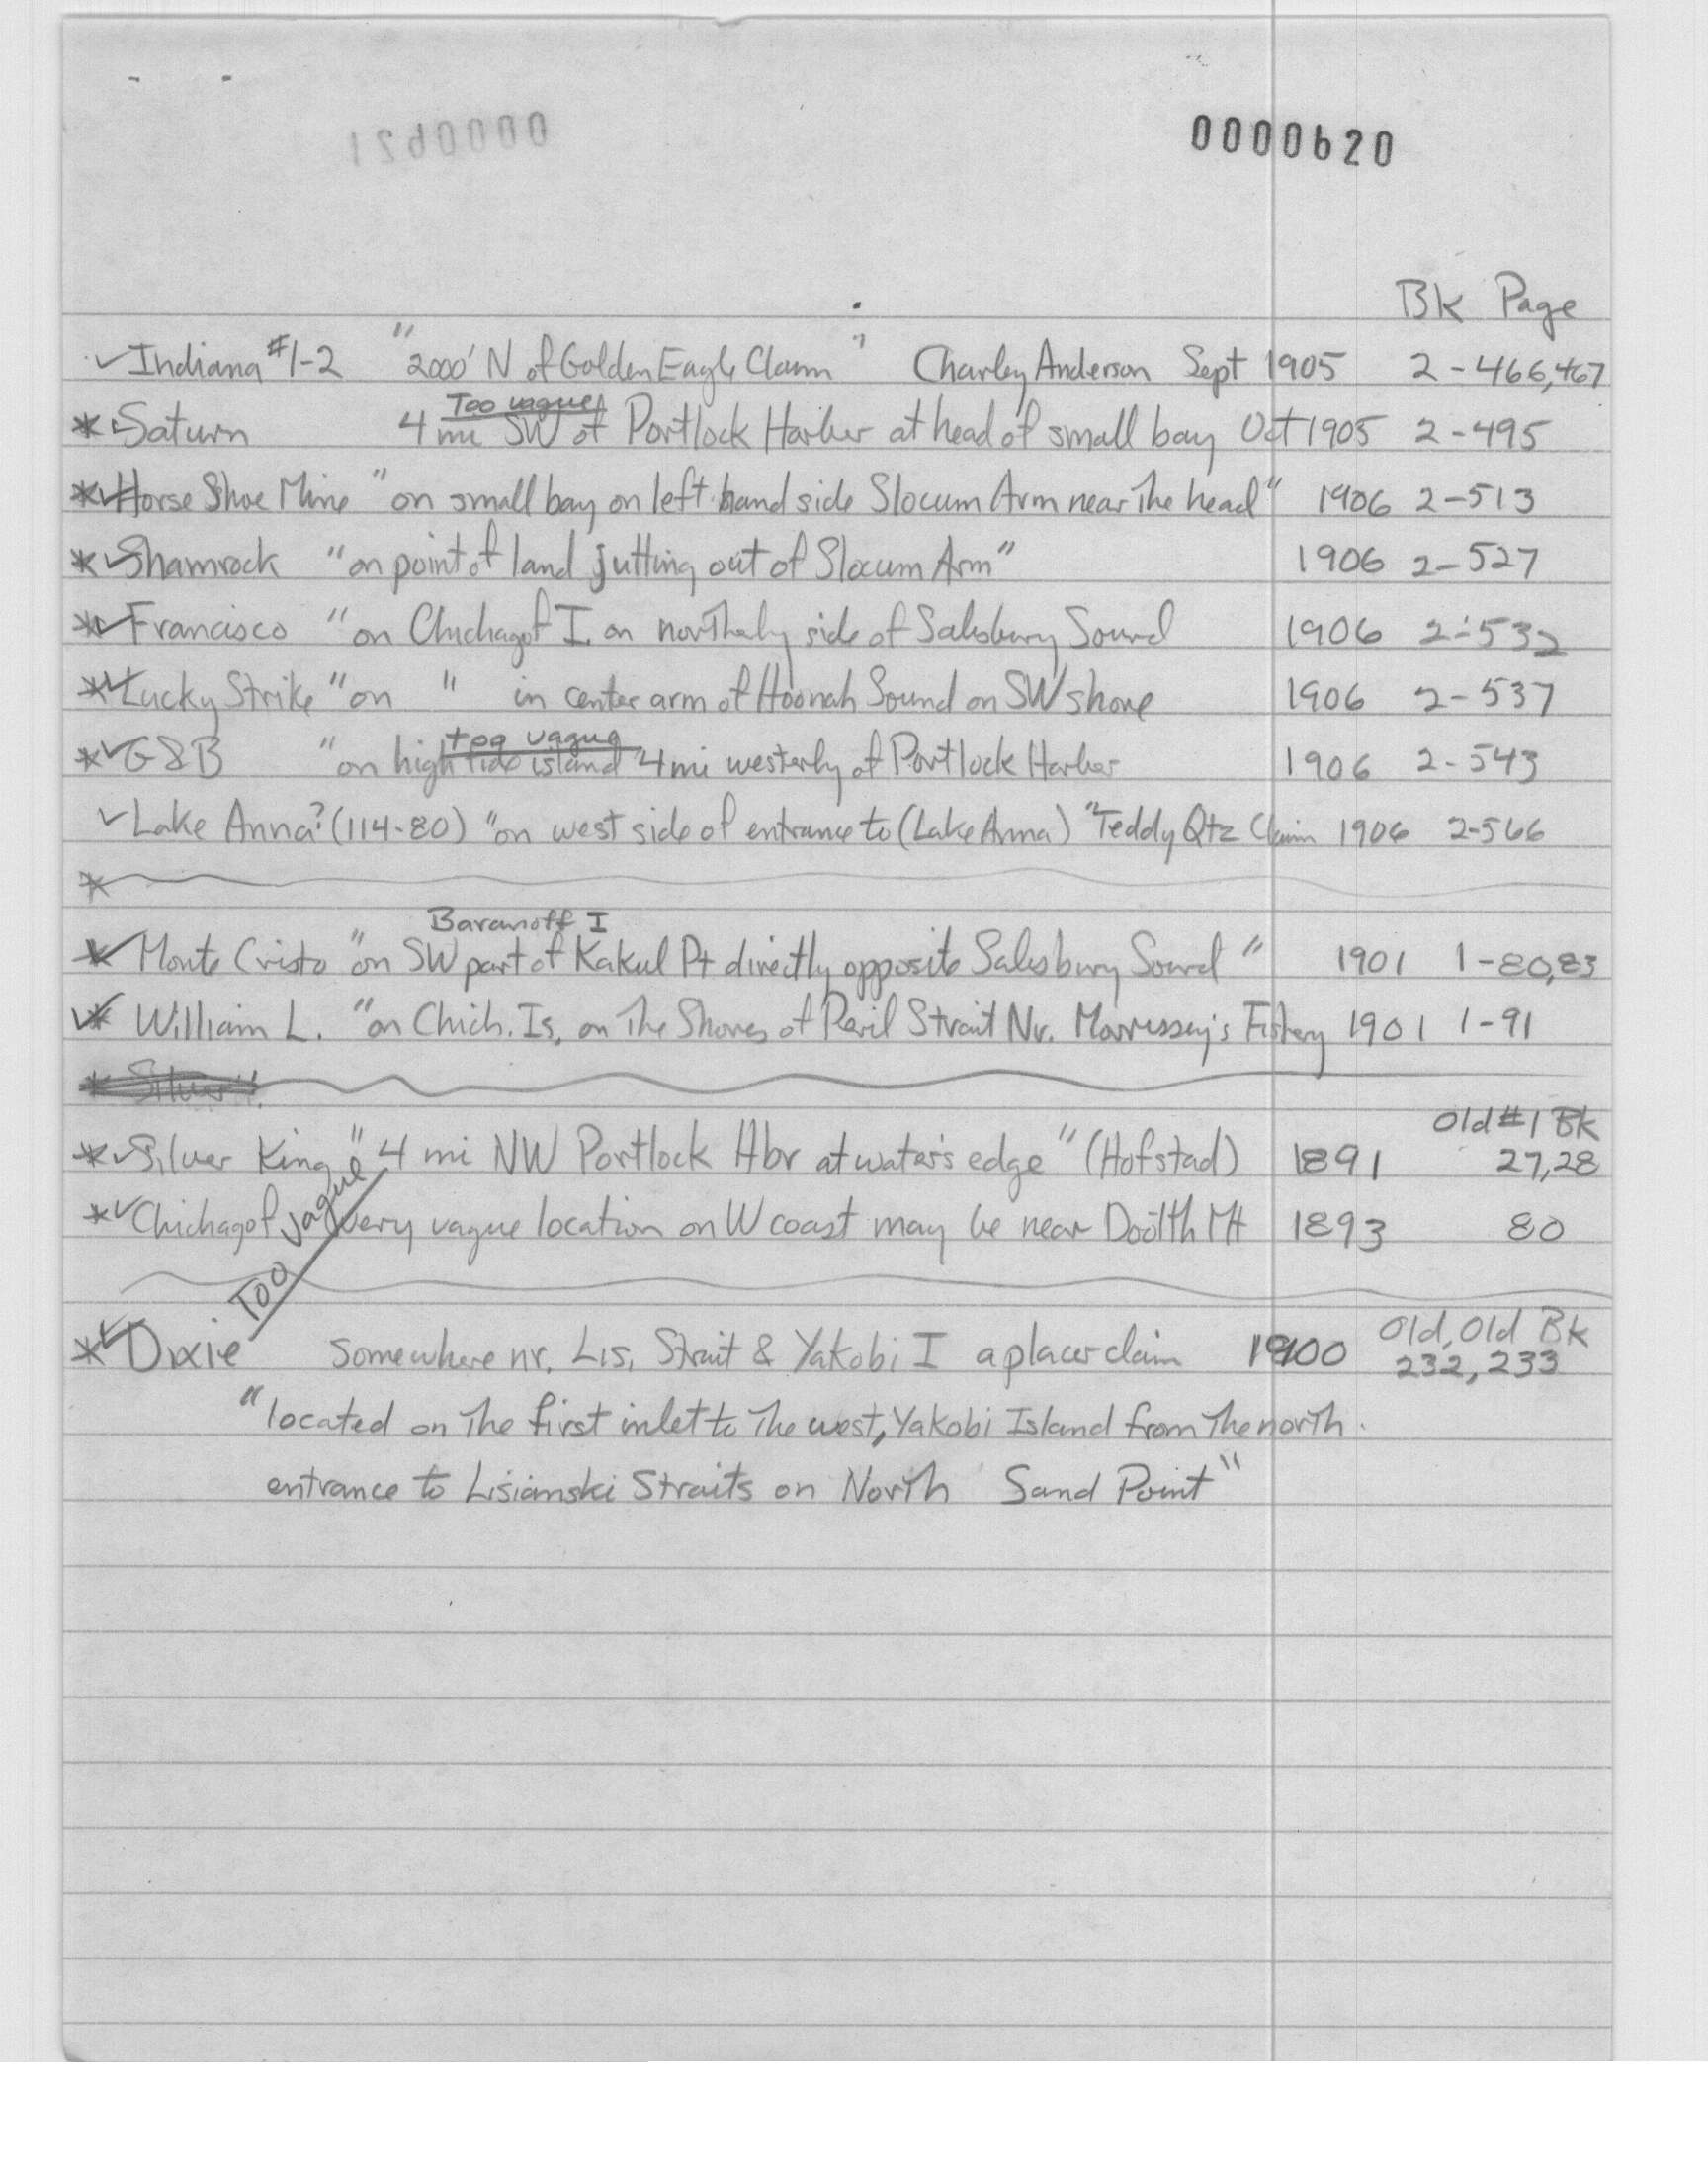 0000621
0000620
Bk Page
✓ Indiana #1-2 "2000' N of Golden Eagle Claim" Charley Anderson Sept 1905 2-466,467
Too vague
*✓ Saturn 4 mi SW of Portlock Harbor at head of small bay Oct 1905 2-495
*✓ Horse Shoe Mine "on small bay on left hand side Slocum Arm near the head" 1906 2-513
*✓ Shamrock "on point of land jutting out of Slocum Arm" 1906 2-527
*✓ Francisco "on Chichagof I. on northerly side of Salisbury Sound 1906 2-532
*✓ Lucky Strike "on " in center arm of Hoonah Sound on SW shore 1906 2-537
too vague
*✓ G&B "on high tide island 4 mi westerly of Portlock Harbor 1906 2-543
✓ Lake Anna? (114-80) "on west side of entrance to (Lake Anna) "Teddy Qtz Claim 1906 2-566
*
Baranoff I
*✓ Monte Cristo "on SW part of Kakul Pt directly opposite Salisbury Sound" 1901 1-80,83
✓* William L. "on Chich. Is, on the Shores of Peril Strait Nr. Morrissey's Fishery 1901 1-91
* Silver
Old #1 Bk
*✓ Silver King "4 mi NW Portlock Hbr at water's edge" (Hofstad) 1891 27,28
*✓ Chichagof very vague location on W coast may be near Doolth Mt 1893 80
Too vague
Old, Old Bk
*✓ Dixie Somewhere nr. Lis, Strait & Yakobi I a placer claim 1900 232, 233
"located on the first inlet to the west, Yakobi Island from the north
entrance to Lisianski Straits on North Sand Point"